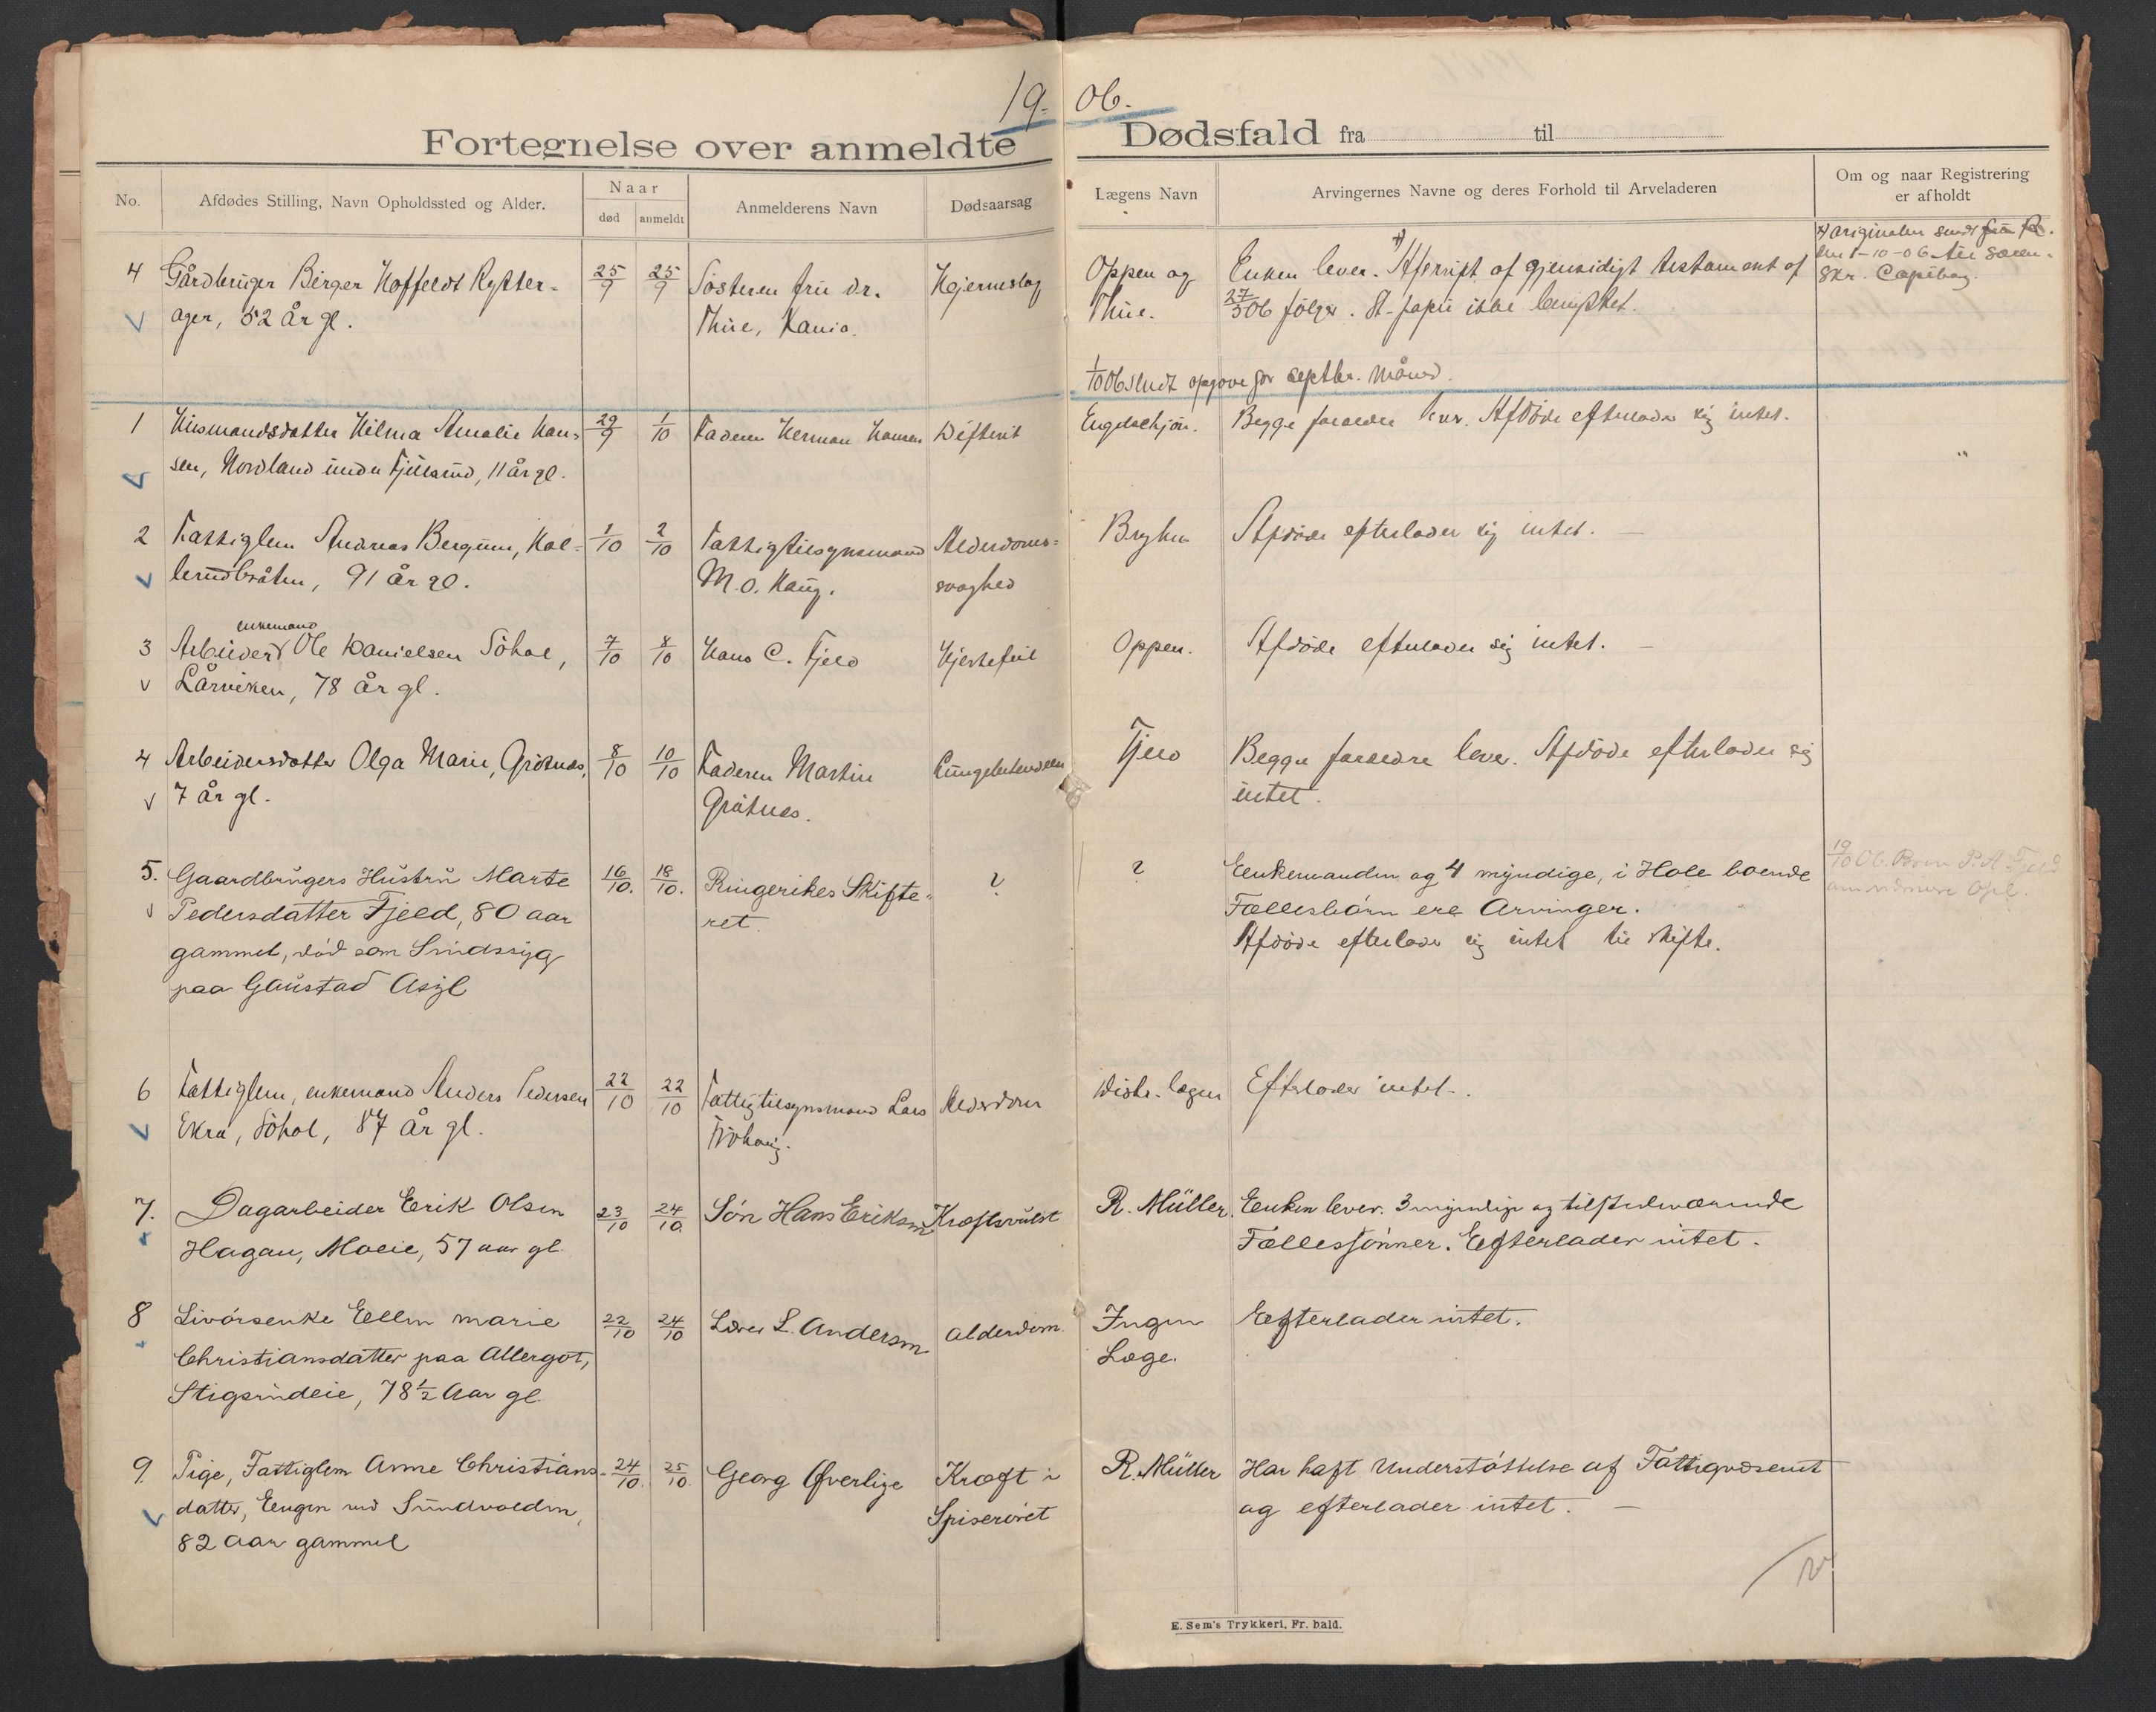 19- 06.
Fortegnelse over anmeldte Dødsfald fra til
No.
Afdødes Stilling, Navn Opholdssted og Alder.
Naar
død
anmeldt
Anmelderens Navn
Dødsaarsag
Lægens Navn
Arvingernes Navne og deres Forhold til Arveladeren
Om og naar Registrering
er afholdt
4 Gårdbruger Birger Hoffeldt Rytter-
ager, 52 år gl.
25/9 25/9
Søsteren fru dr.
Thue,
Hjerneslag
Oppen og
Thue.
Enken lever. Afskrift af gjensidigt testament af
27/5 06 følger. St-papir ikke benyttet.
originalen sendt
1-10-06 til soren-
skr.
1/10 06 sendt opgave for septbr. måned.
1 Husmandsdatter Hilma Amalie Han-
sen, Nordland under Fjulsrud, 11 år gl.
29/9 1/10
Faderen Herman Hansen
Difterit
Engelschjøn.
Begge forældre lever. Afdøde efterlader sig intet.
"
2 Fattiglem Andreas Bergum, Kol-
lerudbråten, 91 år gl.
1/10 2/10
Fattigtilsynsmand
M.O. Haug.
Alderdoms-
svaghed
Bryhn
Afdøde efterlader sig intet. —
3 Arbeider enkemand Ole Danielsen Søhol,
Lårviken, 78 år gl.
7/10 8/10
Hans C. Fjeld
Hjertefeil
Oppen.
Afdøde efterlader sig intet. —
4 Arbeidersdatter Olga Marie, Grøtnes,
7 år gl.
8/10 10/10
Faderen Martin
Grøtnes.
Lungebetændelse
Fjeld
Begge forældre lever. Afdøde efterlader sig
intet.
5. Gaardbrugers Hustru Marte
Pedersdatter Fjeld, 80 aar
gammel, død som Sindssyg
paa Gaustad Asyl
16/10. 18/10.
Ringerikes Skifte-
ret.
?
?
Enkemanden og 4 myndige, i Hole boende
Fællesbørn ere Arvinger.
Afdøde efterlader sig intet til skifte.
19/10 06. P. A. Fjeld
om nærmere Opl.
6 Fattiglem, enkemand Anders Pedersen
Ekra, Søhol, 87 år gl.
22/10 22/10
Fattigtilsynsmand Lars
Alderdom
Distr. lægen
Efterlader intet.
7. Dagarbeider Erik Olsen
Hagan, Moeie, 57 aar gl.
23/10 24/10
Søn Hans Eriksen
Kræftsvulst
R. Müller.
Enken lever. 3 myndige og tilstedeværende
Fællessønner. Efterlader intet.
8 Livørsenke Ellen Marie
Christiansdatter paa Allergot,
Stigsrudeie, 78½ Aar gl.
22/10 24/10
Lærer L. Andersen
alderdom.
Ingen
Læge.
Efterlader intet.
9. Pige, Fattiglem Anne Christians-
datter, Engen ved Sundvolden,
82 aar gammel
24/10. 25/10.
Georg Øverlige
Kræft i
Spiserøret
R. Müller
Har haft Understøttelse af Fattigvæsenet
og efterlader intet. —
E. Sem's Trykkeri, Fr. hald.